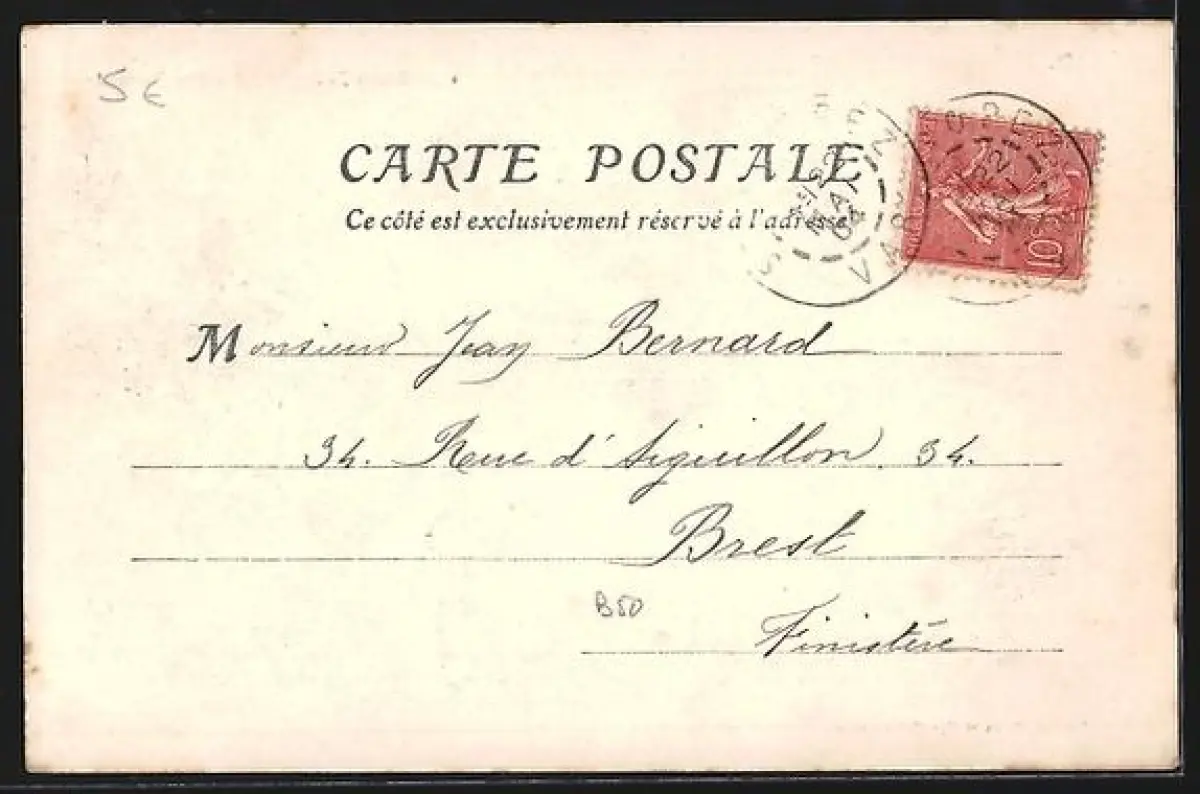 5€
CARTE POSTALE
Ce côté est exclusivement réservé à l'adresse
Monsieur Jean Bernard
34. Rue d'Aiguillon. 34.
Brest
B50
Finistère
MAI
04
VAR
10